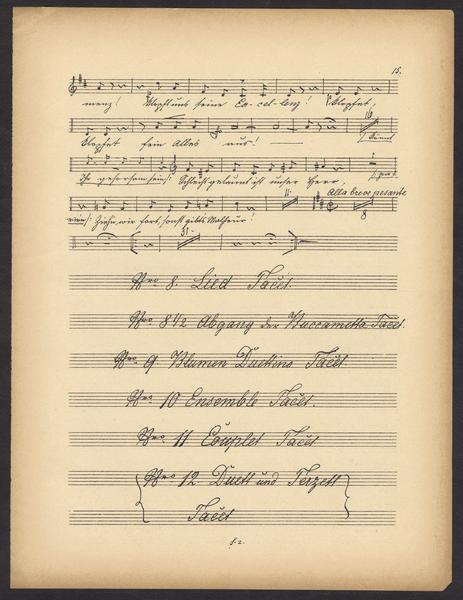 15.
menz! Klopft uns seine Ex-cel-lenz! Klopfet,
klopfet fein Alles aus!
16
Ihr gehorsam sein! Schlecht gelaunt ist unser Herr
Alla breve pesante
Ziehn wir fort, sonst gibts Malheur!
11. 8
31.
Nro 8. Lied Tacet.
Nro 8 1/2 Abgang der Tacet.
Nro. 9. Blumen Duettino Tacet
Nro 10 Ensemble Tacet.
Nro 11 Couplet Tacet
Nro 12. Duett und Terzett
Tacet
f. 2.